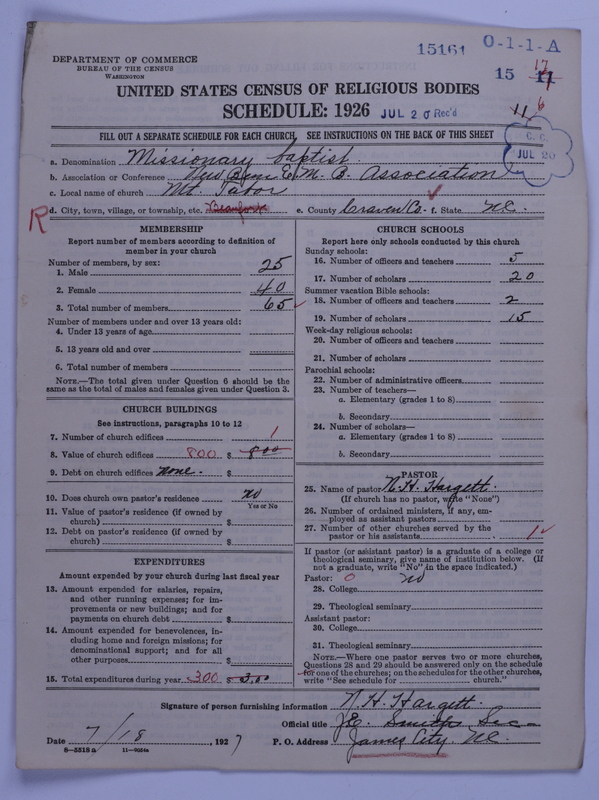 15161 0-1-1-A
DEPARTMENT OF COMMERCE
BUREAU OF THE CENSUS
WASHINGTON
15 17
UNITED STATES CENSUS OF RELIGIOUS BODIES
SCHEDULE: 1926 JUL 20 Rec'd
11 6
FILL OUT A SEPARATE SCHEDULE FOR EACH CHURCH. SEE INSTRUCTIONS ON THE BACK OF THIS SHEET
C. C.
JUL 20
a. Denomination Missionary baptist
b. Association or Conference New Bern E. M. B. Association
c. Local name of church Mt. Tabor
R d. City, town, village, or township, etc. e. County Craven Co f. State N.C.
MEMBERSHIP
Report number of members according to definition of
member in your church
Number of members, by sex:
1. Male 25
2. Female 40
3. Total number of members 65
Number of members under and over 13 years old:
4. Under 13 years of age
5. 13 years old and over
6. Total number of members
NOTE.—The total given under Question 6 should be the
same as the total of males and females given under Question 3.
CHURCH BUILDINGS
See instructions, paragraphs 10 to 12
7. Number of church edifices 1
8. Value of church edifices 800 $ 800
9. Debt on church edifices none. $
10. Does church own pastor's residence no
Yes or No
11. Value of pastor's residence (if owned by
church) $
12. Debt on pastor's residence (if owned by
church) $
EXPENDITURES
Amount expended by your church during last fiscal year
13. Amount expended for salaries, repairs,
and other running expenses; for im-
provements or new buildings; and for
payments on church debt $
14. Amount expended for benevolences, in-
cluding home and foreign missions; for
denominational support; and for all
other purposes $
15. Total expenditures during year 300 $ 300
CHURCH SCHOOLS
Report here only schools conducted by this church
Sunday schools:
16. Number of officers and teachers 5
17. Number of scholars 20
Summer vacation Bible schools:
18. Number of officers and teachers 2
19. Number of scholars 15
Week-day religious schools:
20. Number of officers and teachers
21. Number of scholars
Parochial schools:
22. Number of administrative officers
23. Number of teachers—
a. Elementary (grades 1 to 8)
b. Secondary
24. Number of scholars—
a. Elementary (grades 1 to 8)
b. Secondary
PASTOR
25. Name of pastor N. H. Hargett
(If church has no pastor, write "None")
26. Number of ordained ministers, if any, em-
ployed as assistant pastors
27. Number of other churches served by the
pastor or his assistants 1
If pastor (or assistant pastor) is a graduate of a college or
theological seminary, give name of institution below. (If
not a graduate, write "No" in the space indicated.)
Pastor: 0 no
28. College
29. Theological seminary
Assistant pastor:
30. College
31. Theological seminary
NOTE.—Where one pastor serves two or more churches,
Questions 28 and 29 should be answered only on the schedule
for one of the churches; on the schedules for the other churches,
write "See schedule for church."
Signature of person furnishing information N. H. Hargett
Official title J. E. Smith Sec
Date 7/18, 1927 P. O. Address James City. N.C.
8-5318a 11-9034a